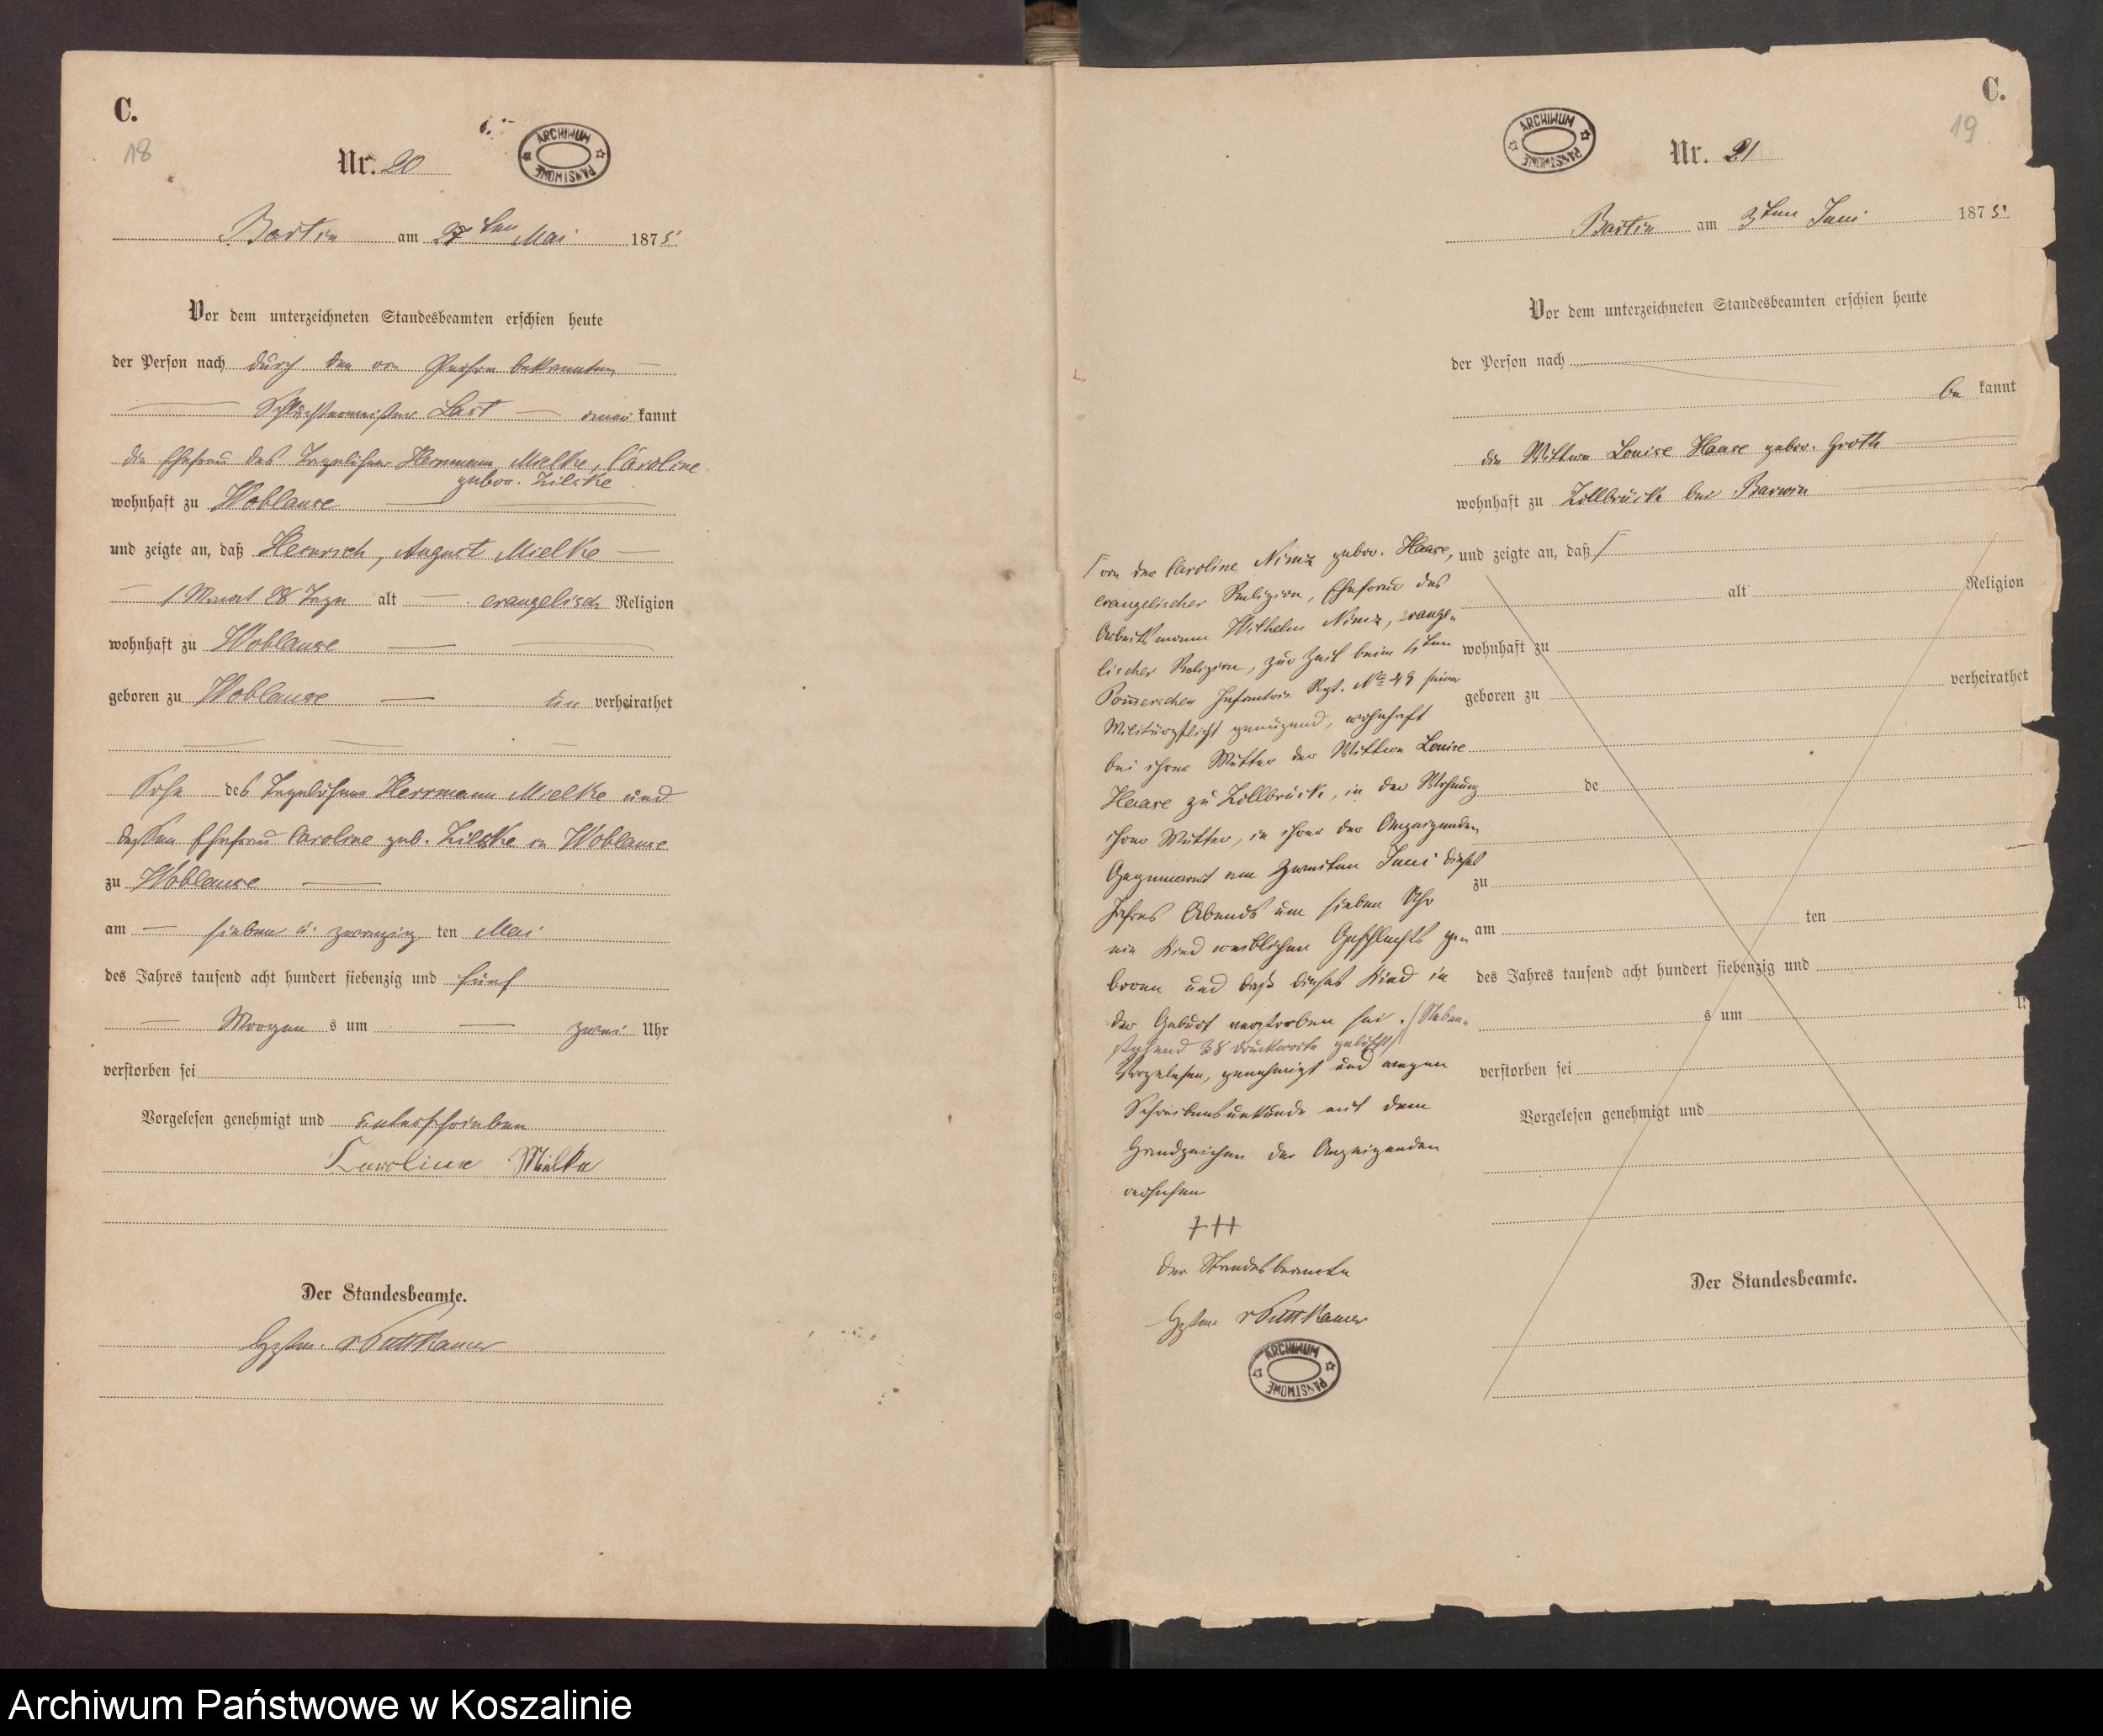 C.
18
Nr. 20
ARCHIWUM PAŃSTWOWE
Bartin am 27ten Mai 1875
Vor dem unterzeichneten Standesbeamten erschien heute
der Person nach durch den von Person bekannten
Last kannt
die Ehefrau des Tagelöhner Herrmann Mielke, Caroline
gebor. Zilske
wohnhaft zu Woblanse
und zeigte an, daß Heinrich, August Mielke
1 Monat 28 Tage alt evangelisch Religion
wohnhaft zu Woblanse
geboren zu Woblanse un verheirathet
Sohn des Tagelöhners Herrmann Mielke und
dessen Ehefrau Caroline geb. Zilske in Woblanse
zu Woblanse
am sieben u. zwanzig ten Mai
des Jahres tausend acht hundert siebenzig und fünf
Morgen s um zwei Uhr
verstorben sei
Vorgelesen genehmigt und unterschrieben
Caroline Mielke
Der Standesbeamte.
v Puttkamer
C.
19
ARCHIWUM PAŃSTWOWE
Nr. 21
Bartin am 3ten Juni 1875
Vor dem unterzeichneten Standesbeamten erschien heute
der Person nach
be kannt
die Wittwe Louise Haase gebor. Groth
wohnhaft zu Zollbrück bei Barwin
und zeigte an, daß
alt Religion
wohnhaft zu
geboren zu verheirathet
de
zu
am ten
des Jahres tausend acht hundert siebenzig und
s um U
verstorben sei
Vorgelesen genehmigt und
Der Standesbeamte.
von der Caroline Nimz gebor. Haase,
evangelischer Religion, Ehefrau des
Arbeitsmann Wilhelm Nimz, evange-
lischer Religion, zur Zeit beim 6ten
Pommerschen Infanterie Rgt. No 49 seiner
Militärpflicht genügend, wohnhaft
bei ihrer Mutter der Wittwe Louise
Haase zu Zollbrück, in der Wohnung
ihrer Mutter, in ihrer der Anzeigenden
Gegenwart am zweiten Juni dieses
Jahres Abends um sieben Uhr
ein Kind weiblichen Geschlechts ge-
boren und daß dieses Kind in
der Geburt verstorben sei. (Neben-
stehend 38 Druckworte gelöscht)
Vorgelesen, genehmigt und wegen
Schreibensunkunde mit dem
Handzeichen der Anzeigenden
versehen
+++
Der Standesbeamte
v Puttkamer
ARCHIWUM PAŃSTWOWE
Archiwum Państwowe w Koszalinie